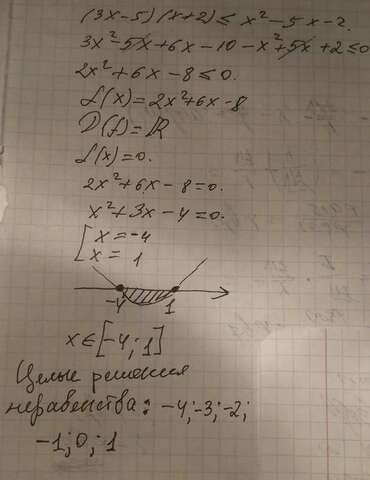 (3x-5)(x+2)≤x²-5x-2.
3x²-5x+6x-10-x²+5x+2≤0
2x²+6x-8≤0.
f(x)=2x²+6x-8
D(f)=ℝ
f(x)=0.
2x²+6x-8=0.
x²+3x-4=0.
[x=-4
x=1
-4 1
x∈[-4;1]
Целые решения
неравенства: -4;-3;-2;
-1;0;1